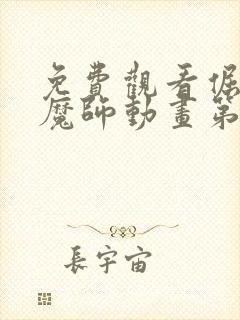 免費觀看倔
魔師動畫第
長宇宙